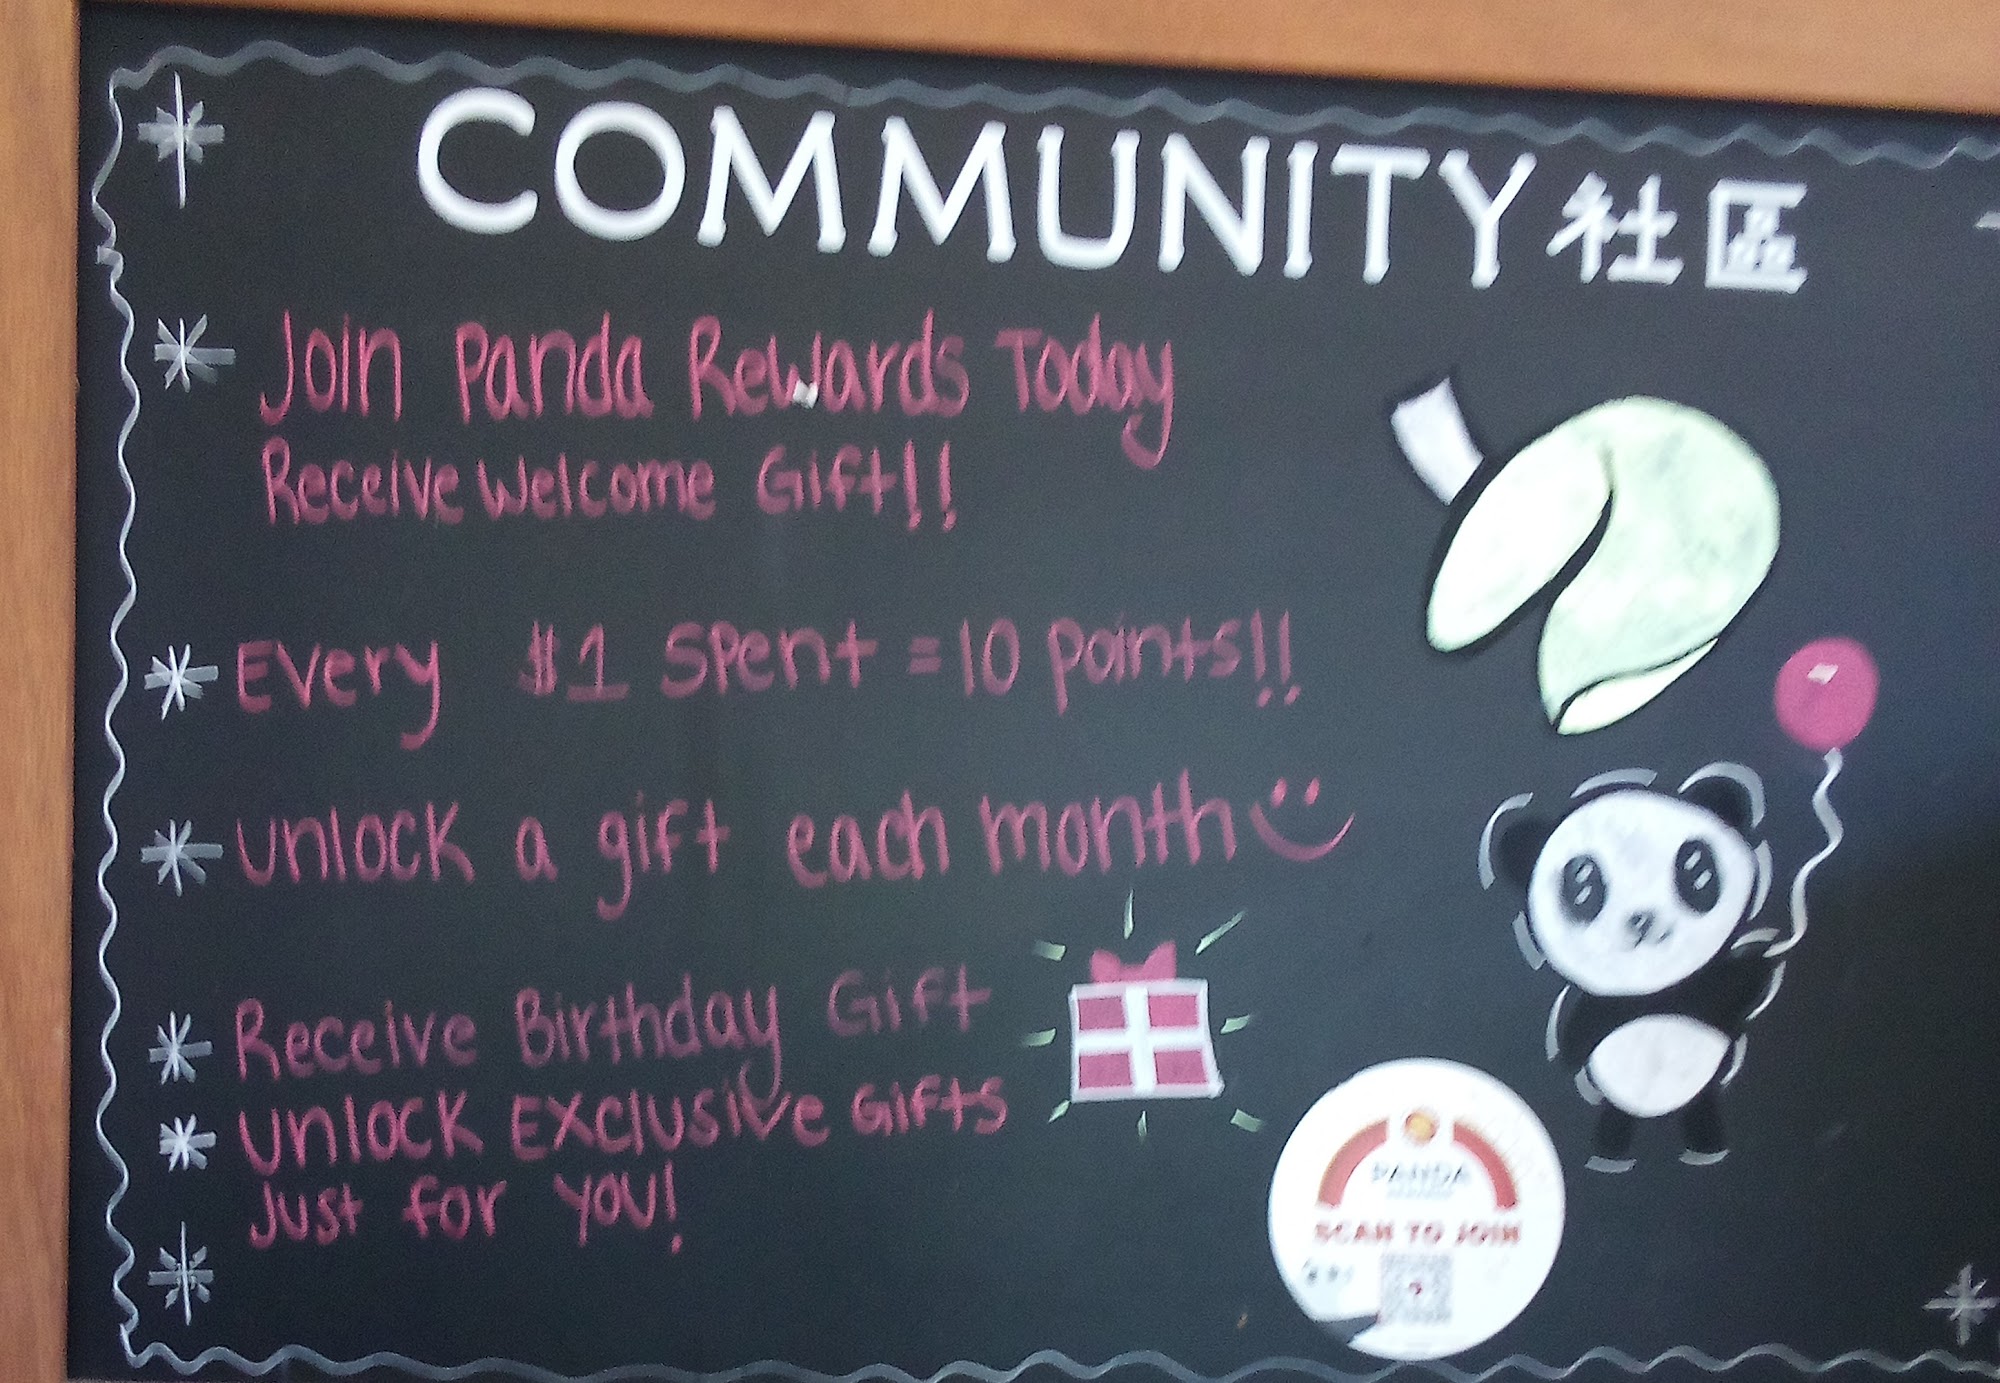 COMMUNITY 社區
Join Panda Rewards Today
Receive Welcome Gift!!
Every $1 spent = 10 points!!
Unlock a gift each month
Receive Birthday Gift
Unlock Exclusive Gifts
Just for you!
PANDA
SCAN TO JOIN